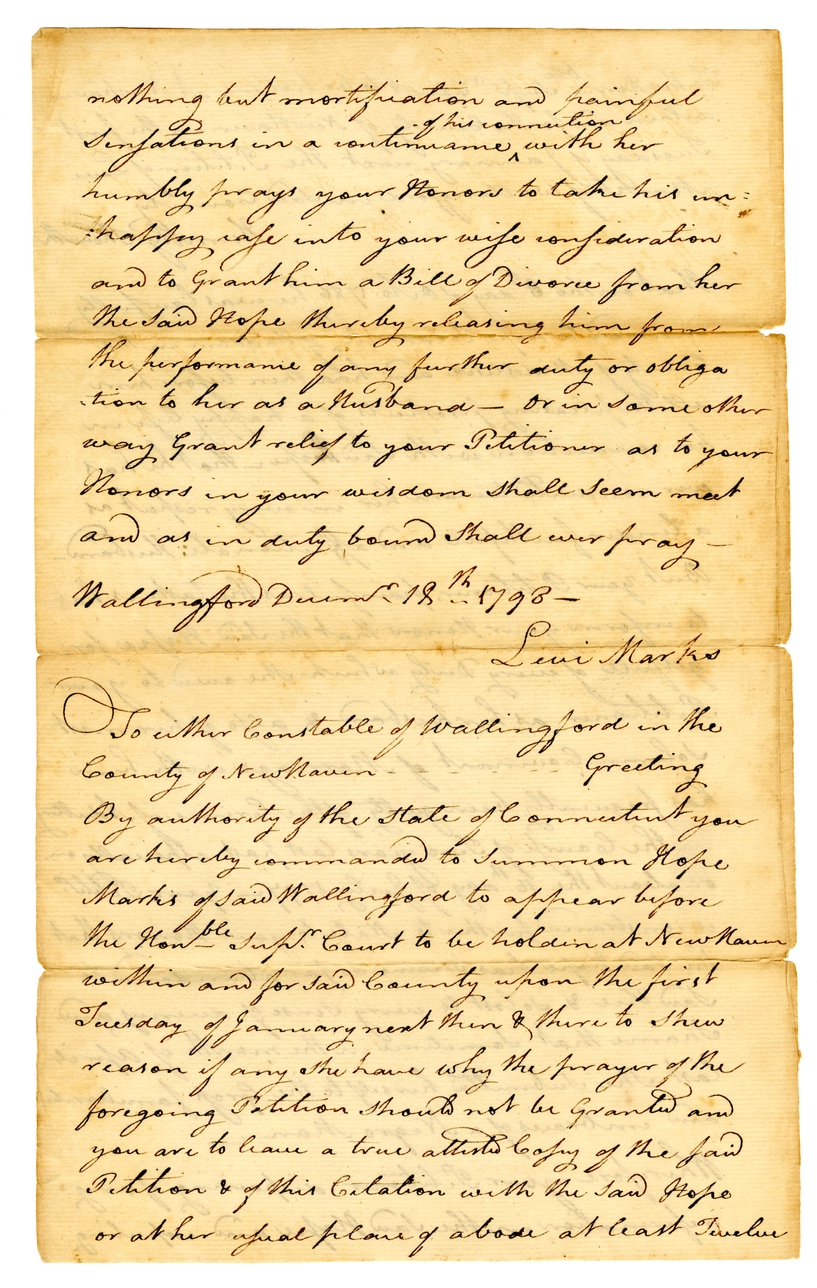 nothing but mortification and painful
of his connection
Sensations in a continuance ^ with her
humbly prays your Honors to take his un=
:happy case into your wise consideration
and to Grant him a Bill of Divorce from her
the said Hope thereby releasing him from
the performance of any further duty or obliga
:tion to her as a Husband — Or in some other
way Grant relief to your Petitioner as to your
Honors in your wisdom shall seem meet
and as in duty bound shall ever pray —
Wallingford Decemr. 18th 1798 —
Levi Marks
To either Constable of Wallingford in the
County of New Haven - - - Greeting
By authority of the State of Connecticut you
are hereby commanded to summon Hope
Marks of said Wallingford to appear before
the Honble Supr. Court to be holden at New Haven
within and for said County upon the first
Tuesday of January next then & there to shew
reason if any she have why the prayer of the
foregoing Petition should not be Granted and
you are to leave a true attested Copy of the said
Petition & of this Citation with the said Hope
or at her usual place of abode at least Twelve